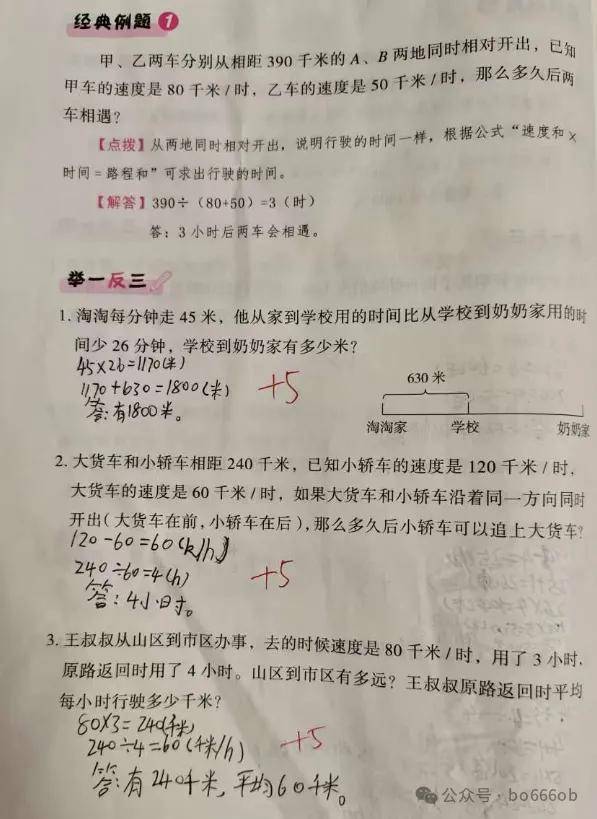 经典例题 1
甲、乙两车分别从相距 390 千米的 A、B 两地同时相对开出，已知
甲车的速度是 80 千米/时，乙车的速度是 50 千米/时，那么多久后两
车相遇？
【点拨】从两地同时相对开出，说明行驶的时间一样，根据公式“速度和×
时间=路程和”可求出行驶的时间。
【解答】390÷（80+50）=3（时）
答：3 小时后两车会相遇。
举一反三
1. 淘淘每分钟走 45 米，他从家到学校用的时间比从学校到奶奶家用的时
间少 26 分钟，学校到奶奶家有多少米？
45×26=1170(米)
1170+630=1800(米)
答：有1800米。
+5
630 米
淘淘家 学校 奶奶家
2. 大货车和小轿车相距 240 千米，已知小轿车的速度是 120 千米/时，
大货车的速度是 60 千米/时，如果大货车和小轿车沿着同一方向同时
开出（大货车在前，小轿车在后），那么多久后小轿车可以追上大货车？
120-60=60(k/h)
240÷60=4(h)
答：4小时。
+5
3. 王叔叔从山区到市区办事，去的时候速度是 80 千米/时，用了 3 小时，
原路返回时用了 4 小时。山区到市区有多远？王叔叔原路返回时平均
每小时行驶多少千米？
80×3=240(千米)
240÷4=60(千米/h)
答：有240千米，平均60千米。
+5
公众号·bo666ob